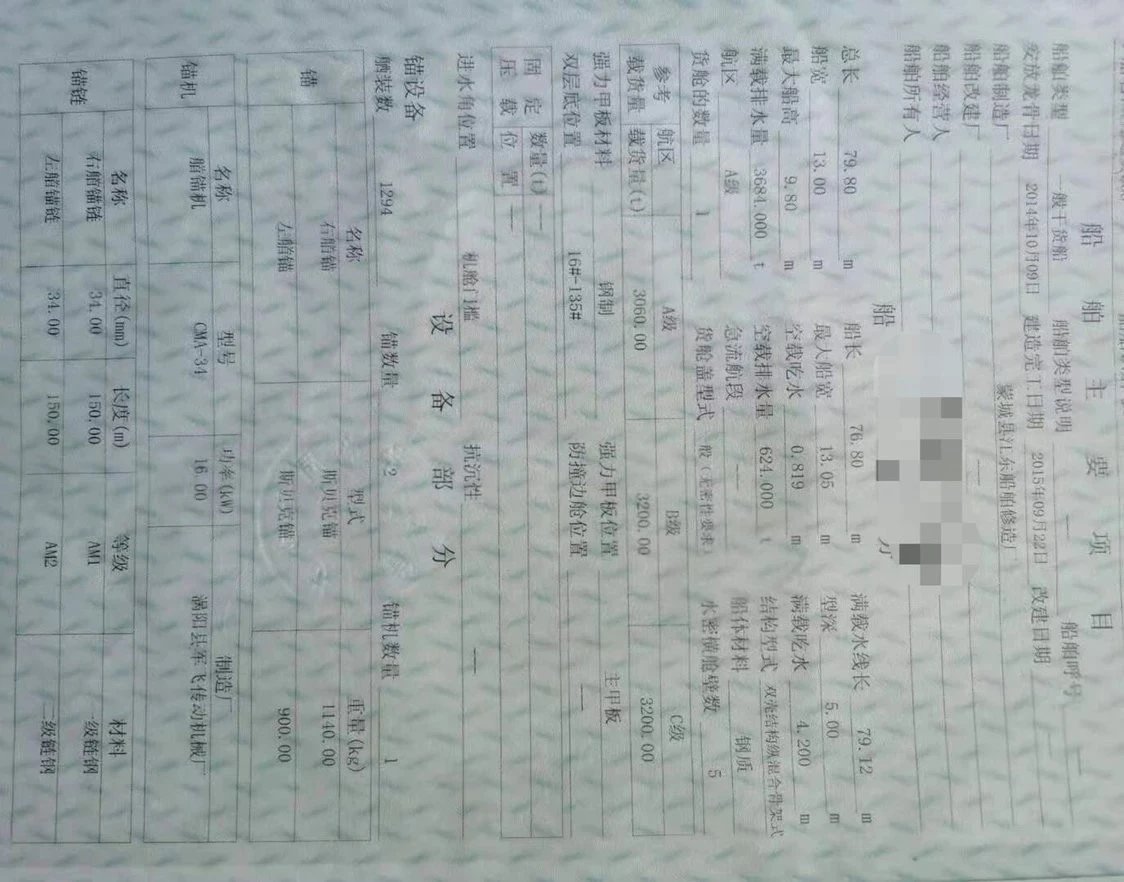 船舶主要项目
船舶类型 一般干货船 船舶类型说明 — 船舶呼号 —
安放龙骨日期 2014年10月09日 建造完工日期 2015年09月22日 改建日期
船舶制造厂 蒙城县江东船舶修造厂
船舶改建厂 —
船舶经营人
船舶所有人
船
总长 79.80 m 船长 76.80 m 满载水线长 79.12 m
船宽 13.00 m 最大船宽 13.05 m 型深 5.00 m
最大船高 9.80 m 空载吃水 0.819 m 满载吃水 4.200 m
满载排水量 3684.000 t 空载排水量 624.000 t 结构型式 双壳结构纵混合骨架式
航区 A级 急流航段 — 船体材料 钢质
货舱的数量 1 货舱盖型式 一般(无密性要求) 水密横舱壁数 5
参考载货量 航区 A级 B级 C级
载货量(t) 3060.00 3200.00 3200.00
强力甲板材料 钢制 强力甲板位置 主甲板
双层底位置 16#-135# 防撞边舱位置 —
固定压载 数量(t) —
位置 —
进水角位置 机舱门槛 抗沉性 —
设备部分
锚设备
舾装数 1294 锚数量 2 锚机数量 1
锚 名称 型式 重量(kg)
右艏锚 斯贝克锚 1140.00
左艏锚 斯贝克锚 900.00
锚机 名称 型号 功率(kW) 制造厂
艏锚机 CMA-34 16.00 涡阳县军飞传动机械厂
锚链 名称 直径(mm) 长度(m) 等级 材料
右艏锚链 34.00 150.00 AM1 一级链钢
左艏锚链 34.00 150.00 AM2 二级链钢